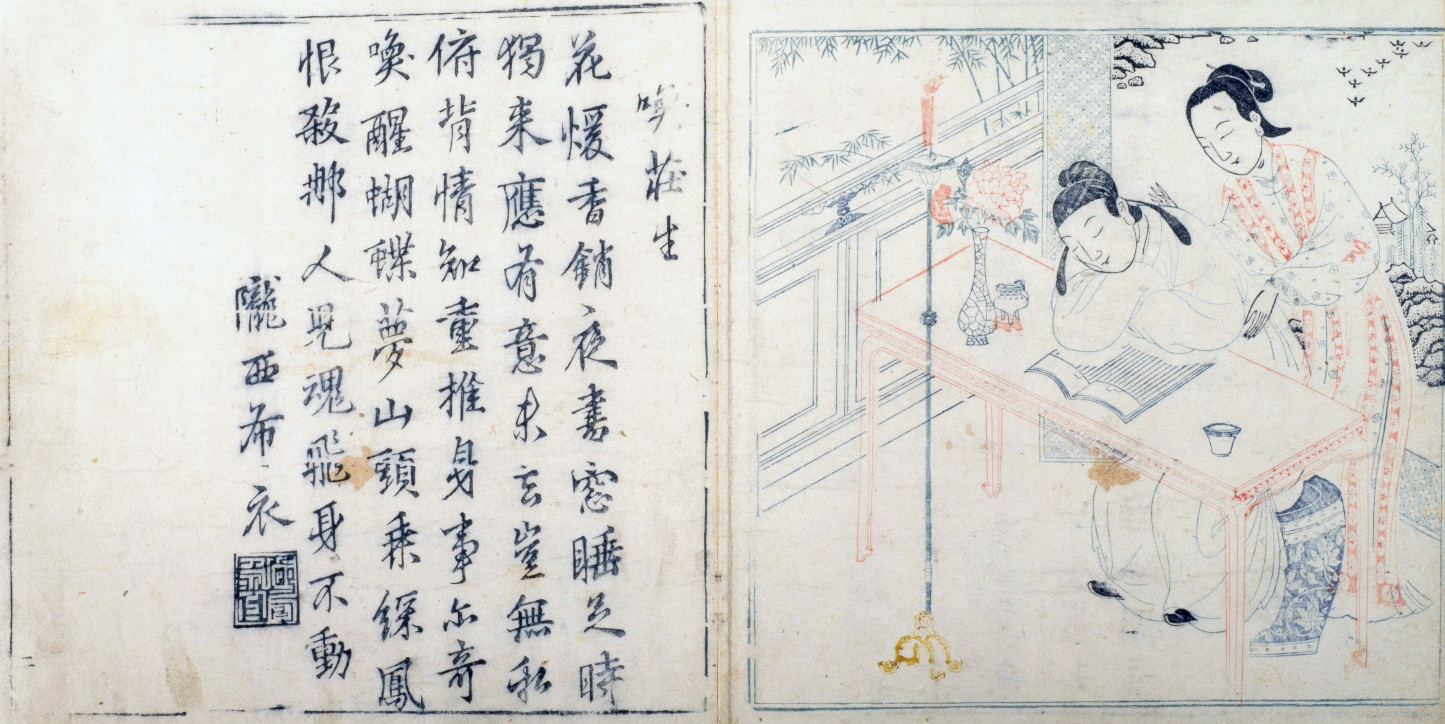 喚莊生
花煖香銷夜書窓睡足時
獨來應有意未去豈無私
俯背情知重推身事亦奇
喚醒蝴蝶夢山頭乘綵鳳
恨殺那人兒魂飛身不動
隴西布衣